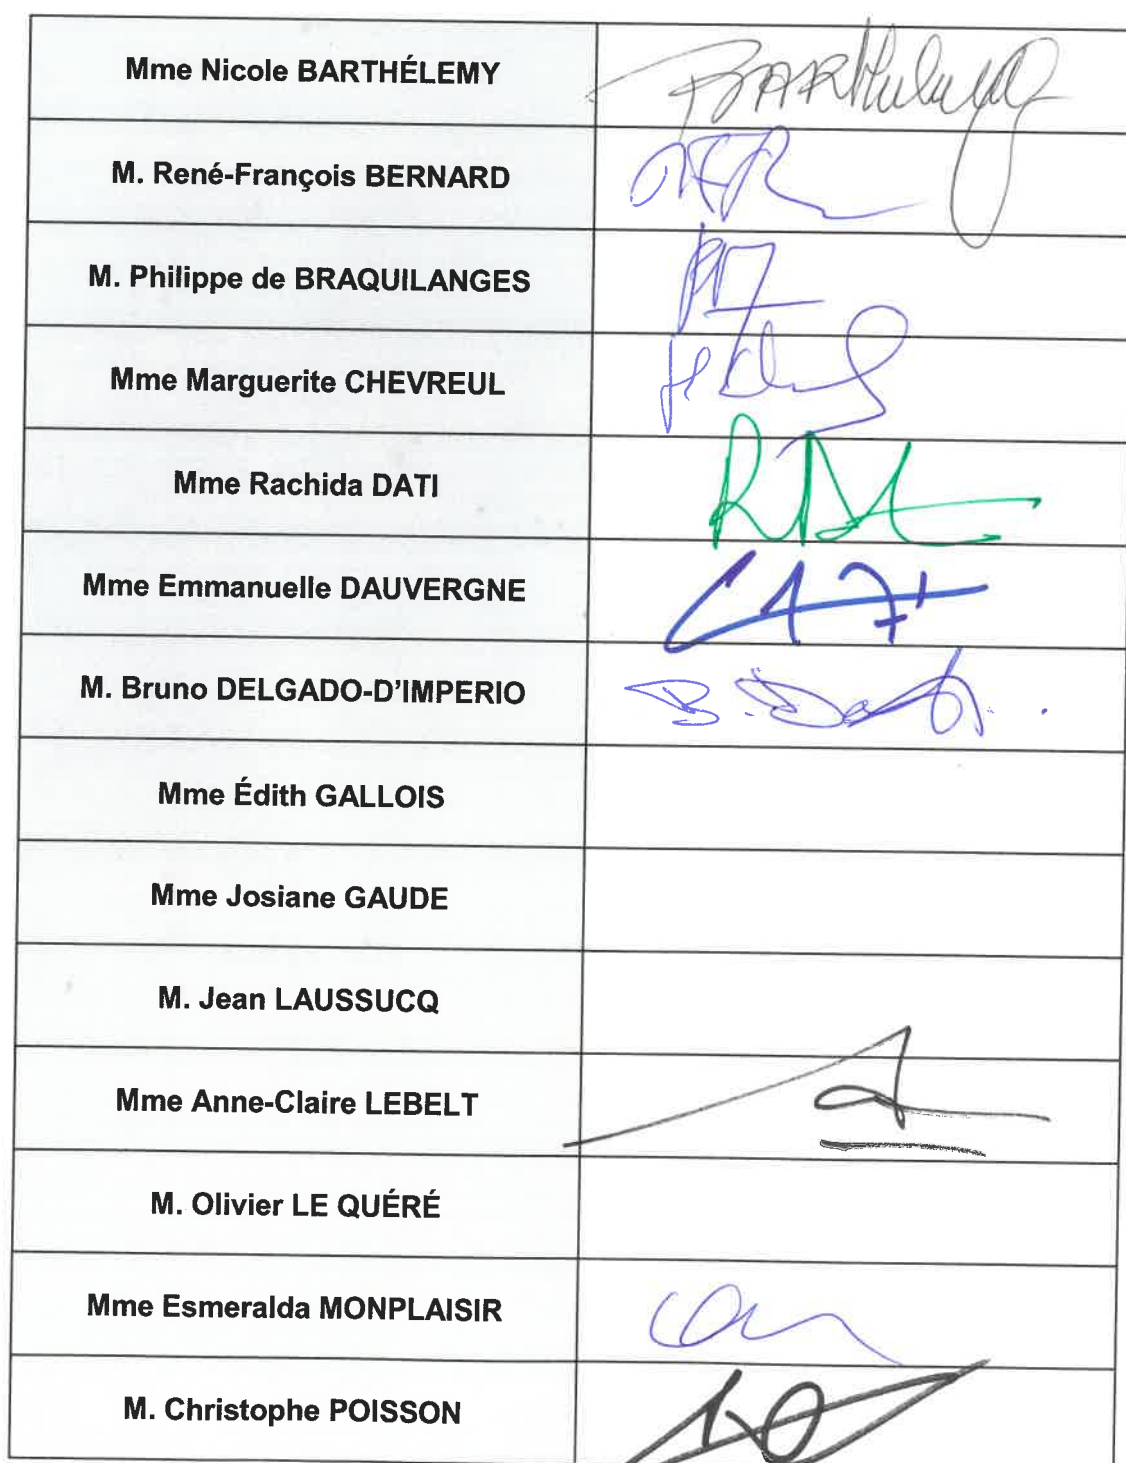 Mme Nicole BARTHÉLEMY
BARthelemy
M. René-François BERNARD
M. Philippe de BRAQUILANGES
Mme Marguerite CHEVREUL
Mme Rachida DATI
Mme Emmanuelle DAUVERGNE
M. Bruno DELGADO-D'IMPERIO
Mme Édith GALLOIS
Mme Josiane GAUDE
M. Jean LAUSSUCQ
Mme Anne-Claire LEBELT
M. Olivier LE QUÉRÉ
Mme Esmeralda MONPLAISIR
M. Christophe POISSON